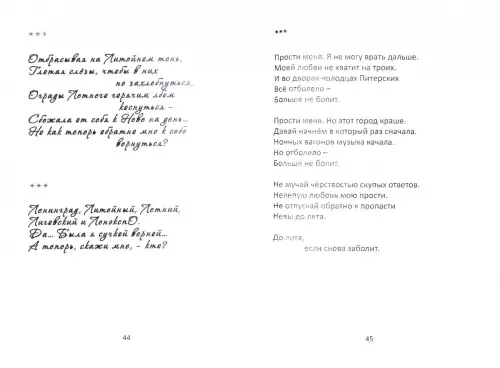 ***
Отбрасывая на Литейном тень,
Глотая слёзы, чтобы в них
не захлебнуться,
Ограды Летного горячим лбом
коснуться –
Сбежала от себя к Неве на день...
Но как теперь обратно мне к себе
вернуться?
***
Ленинград, Литейный, Летний,
Лиговский и ЛенэкспО.
Да... Была я сучкой верной...
А теперь, скажи мне, - кто?
44
***
Прости меня. Я не могу врать дальше.
Моей любви не хватит на троих.
И во дворах-колодцах Питерских
Всё отболело –
Больше не болит.
Прости меня. Но этот город краше.
Давай начнём в который раз сначала.
Ночных вагонов музыка качала.
Но отболело –
Больше не болит.
Не мучай чёрствостью скупых ответов.
Нелепую любовь мою прости.
Не отпускай обратно к пропасти
Невы до лета.
До лета,
если снова заболит.
45